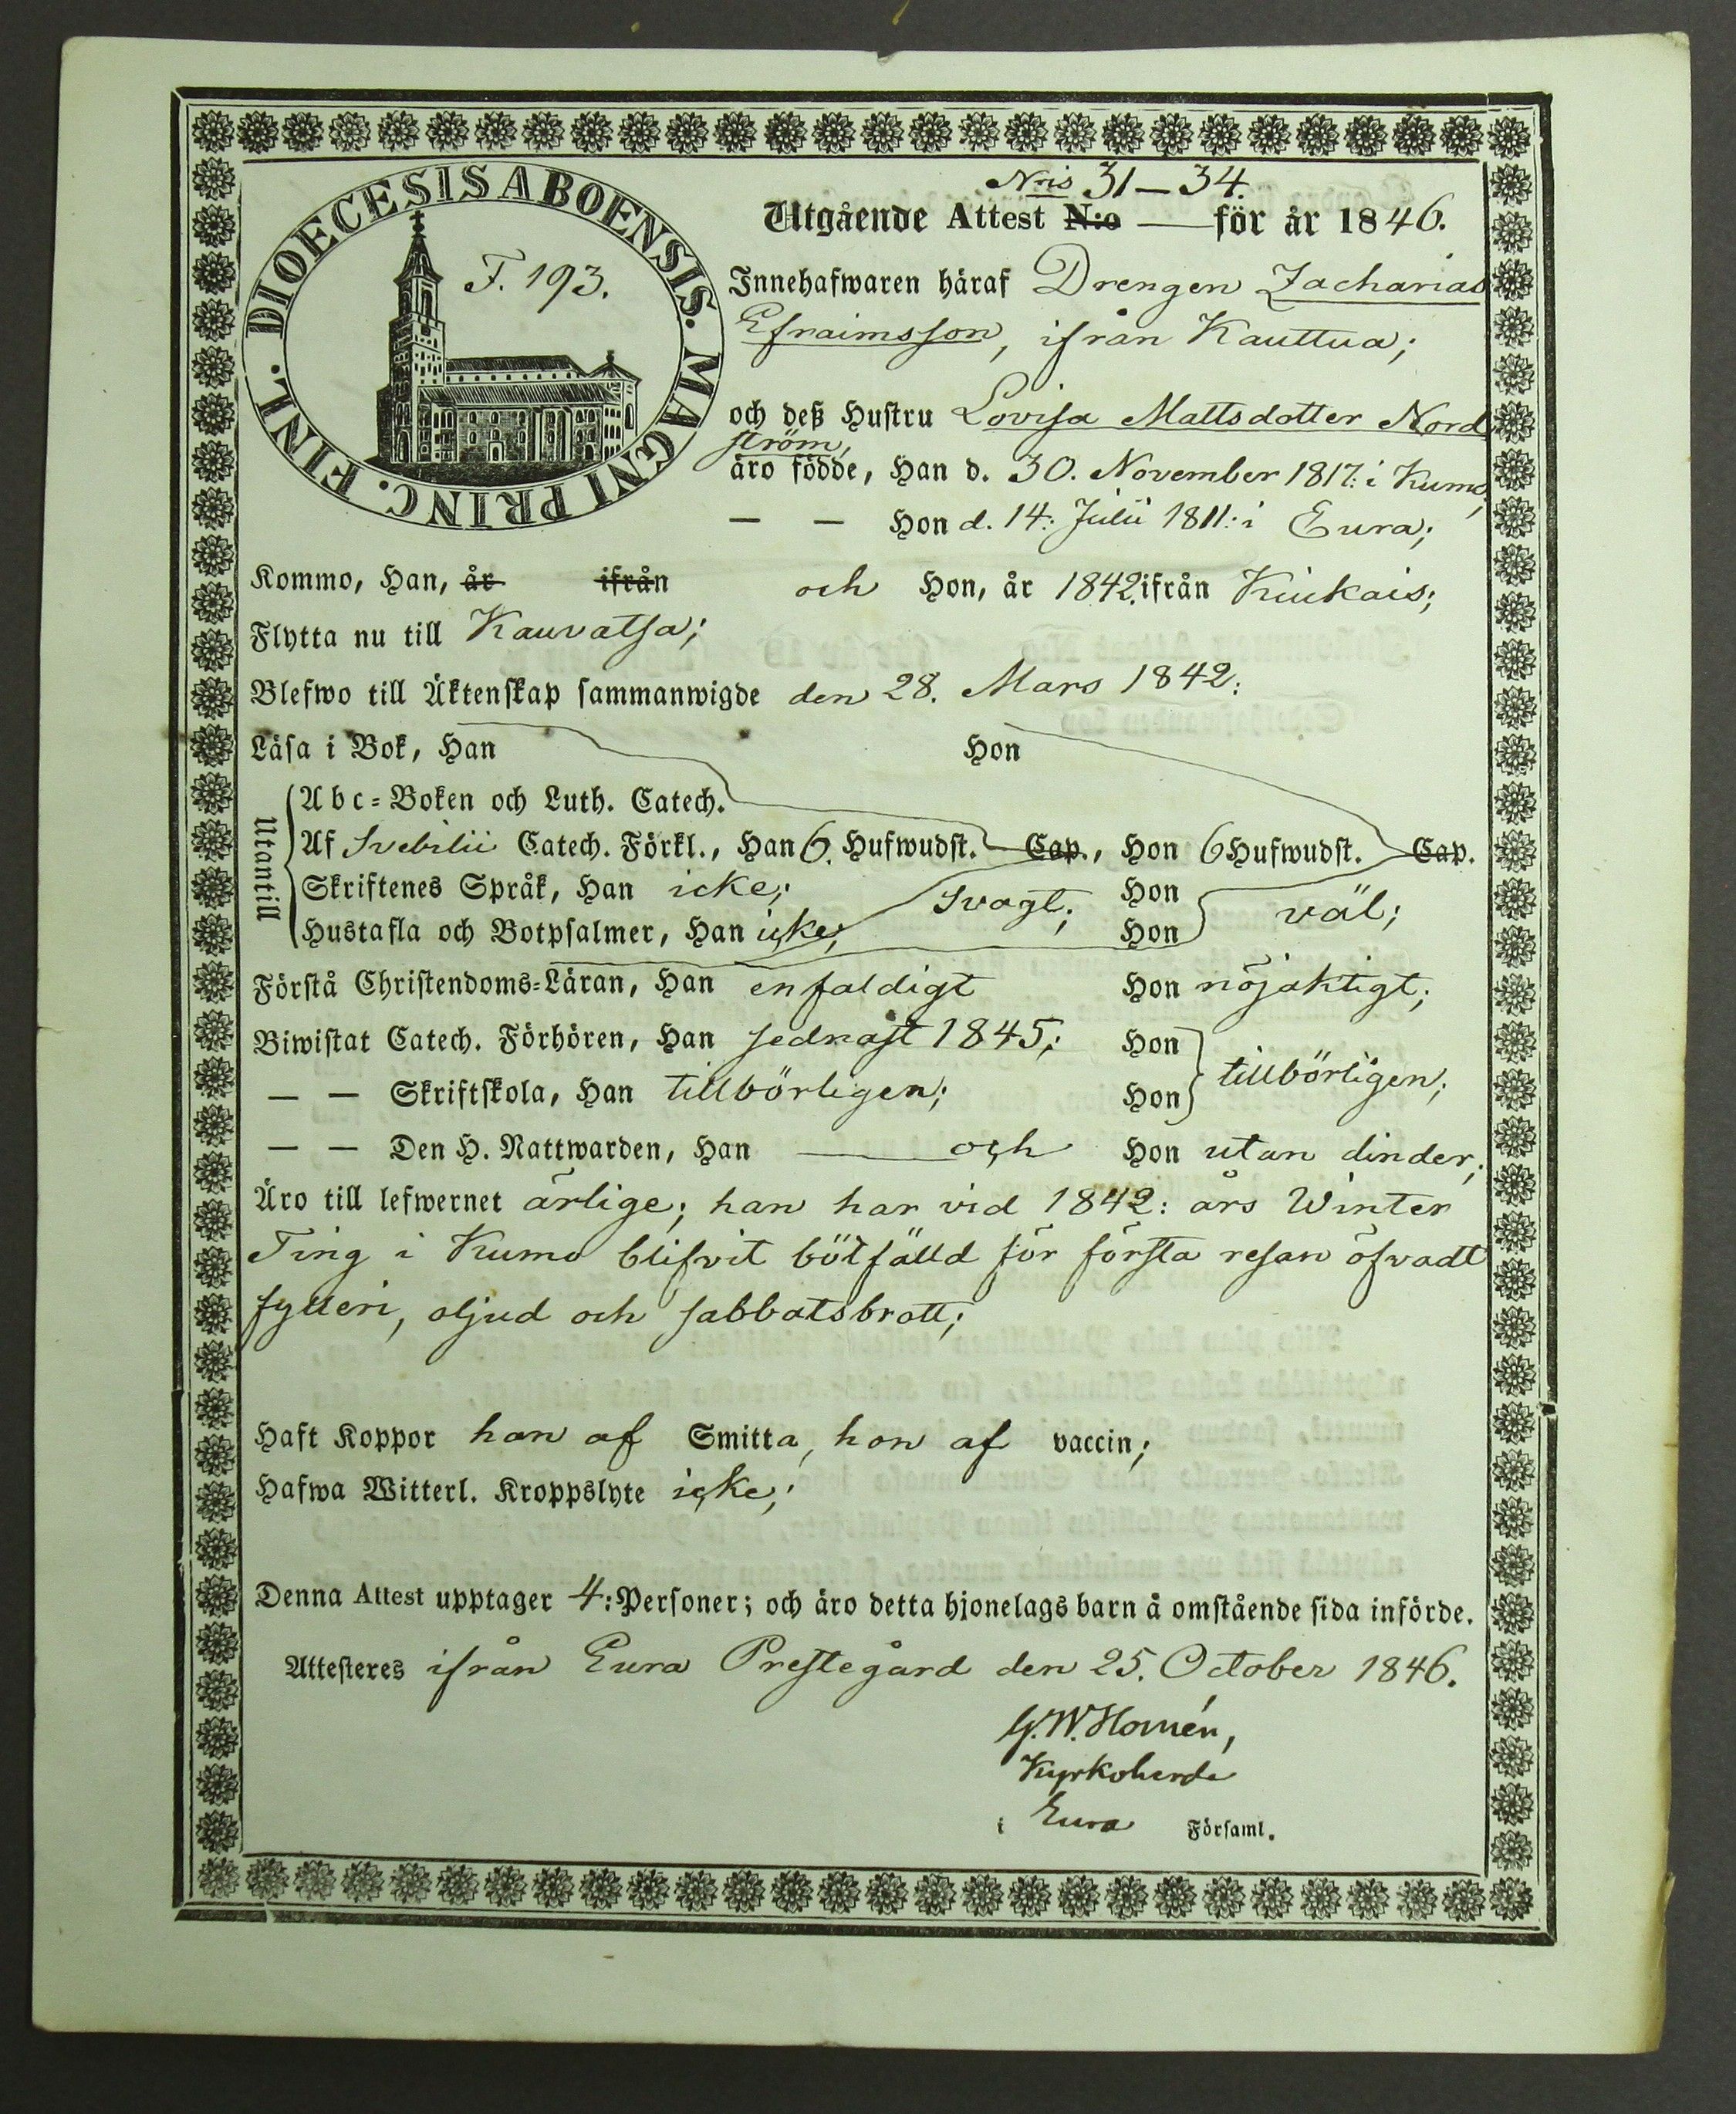 DIOECESIS ABOENSIS. MAGNI PRINC. FINL.
F. 193.
Nris 31–34.
Utgående Attest N:o — för år 1846.
Innehafwaren häraf Drengen Zacharias
Efraimsson, ifrån Kauttua;
och deß Hustru Lovisa Mattsdotter Nord
ström,
äro födde, Han d. 30. November 1817: i Kumo,
— — Hon d. 14: Julii 1811: i Eura;
Kommo, Han, år ifrån och Hon, år 1842. ifrån Kiukais;
Flytta nu till Kauvatsa;
Blefwo till Äktenskap sammanwigde den 28. Mars 1842:
Läsa i Bok, Han Hon
Utantill
Abc-Boken och Luth. Catech.
Af Svebilii Catech. Förkl., Han 6. Hufwudst. Cap., Hon 6 Hufwudst. Cap.
Skriftenes Språk, Han icke; Svagt; Hon väl;
Hustafla och Botpsalmer, Han icke; Hon
Förstå Christendoms-Läran, Han enfaldigt Hon nöjaktigt;
Biwistat Catech. Förhören, Han sednast 1845; Hon tillbörligen;
— — Skriftskola, Han tillbörligen; Hon
— — Den H. Nattwarden, Han — och Hon utan hinder;
Äro till lefwernet ärlige; han har vid 1842: års Winter
Ting i Kumo blifvit bötfälld för första resan öfvadt
fylleri, oljud och sabbatsbrott;
Haft Koppor han af Smitta, hon af vaccin;
Hafwa Witterl. Kroppslyte icke;
Denna Attest upptager 4: Personer; och äro detta hjonelags barn å omstående sida införde.
Attesteres ifrån Eura Prestegård den 25. October 1846.
G. W. Homén,
Kyrkoherde
i Eura Församl.